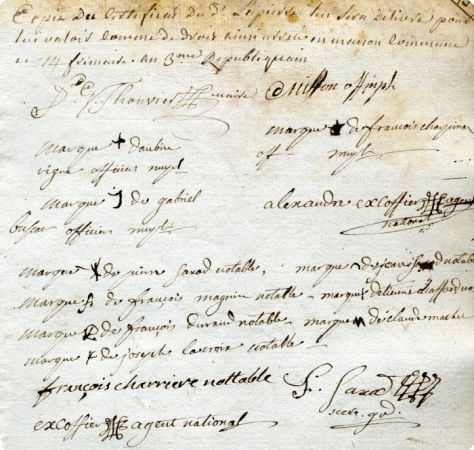 Copie du Certificat du Sr Lapierre lui sera délivré pour
lui valoir comme de droit ainsi arrêté en maison commune
ce 14 frimaire an 3me Republiquain
Thouvier maire
off impl
marque de françois
off muyl
Marque daubin
vigne officier muyl
Marque de gabriel
officier muyl
alexandre excoffier agent
national
Marque de pierre Saxod notable, marque de jean notable
Marque de françois magnin notable - marque detienne
Marque de françois durand notable - marque de claude
Marque de joseph lacroix notable
françois charriere nottable
S. Saxod
secr. gd.
excoffier agent national